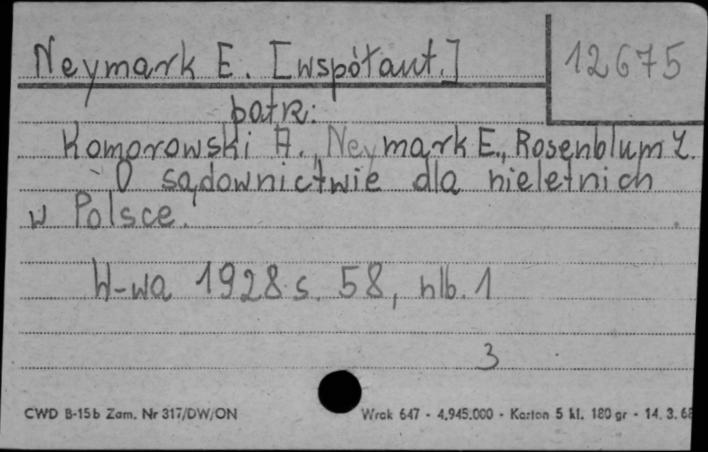 Neymark E. [współaut.]
12675
patrz:
Komorowski A., Neymark E., Rosenblum L.
O sądownictwie dla nieletnich
w Polsce.
W-wa 1928 s. 58, nlb. 1
3
CWD B-15b Zam. Nr 317/DW/ON
Wrak 647 - 4.945.000 - Karton 5 kl. 180 gr - 14. 3. 68